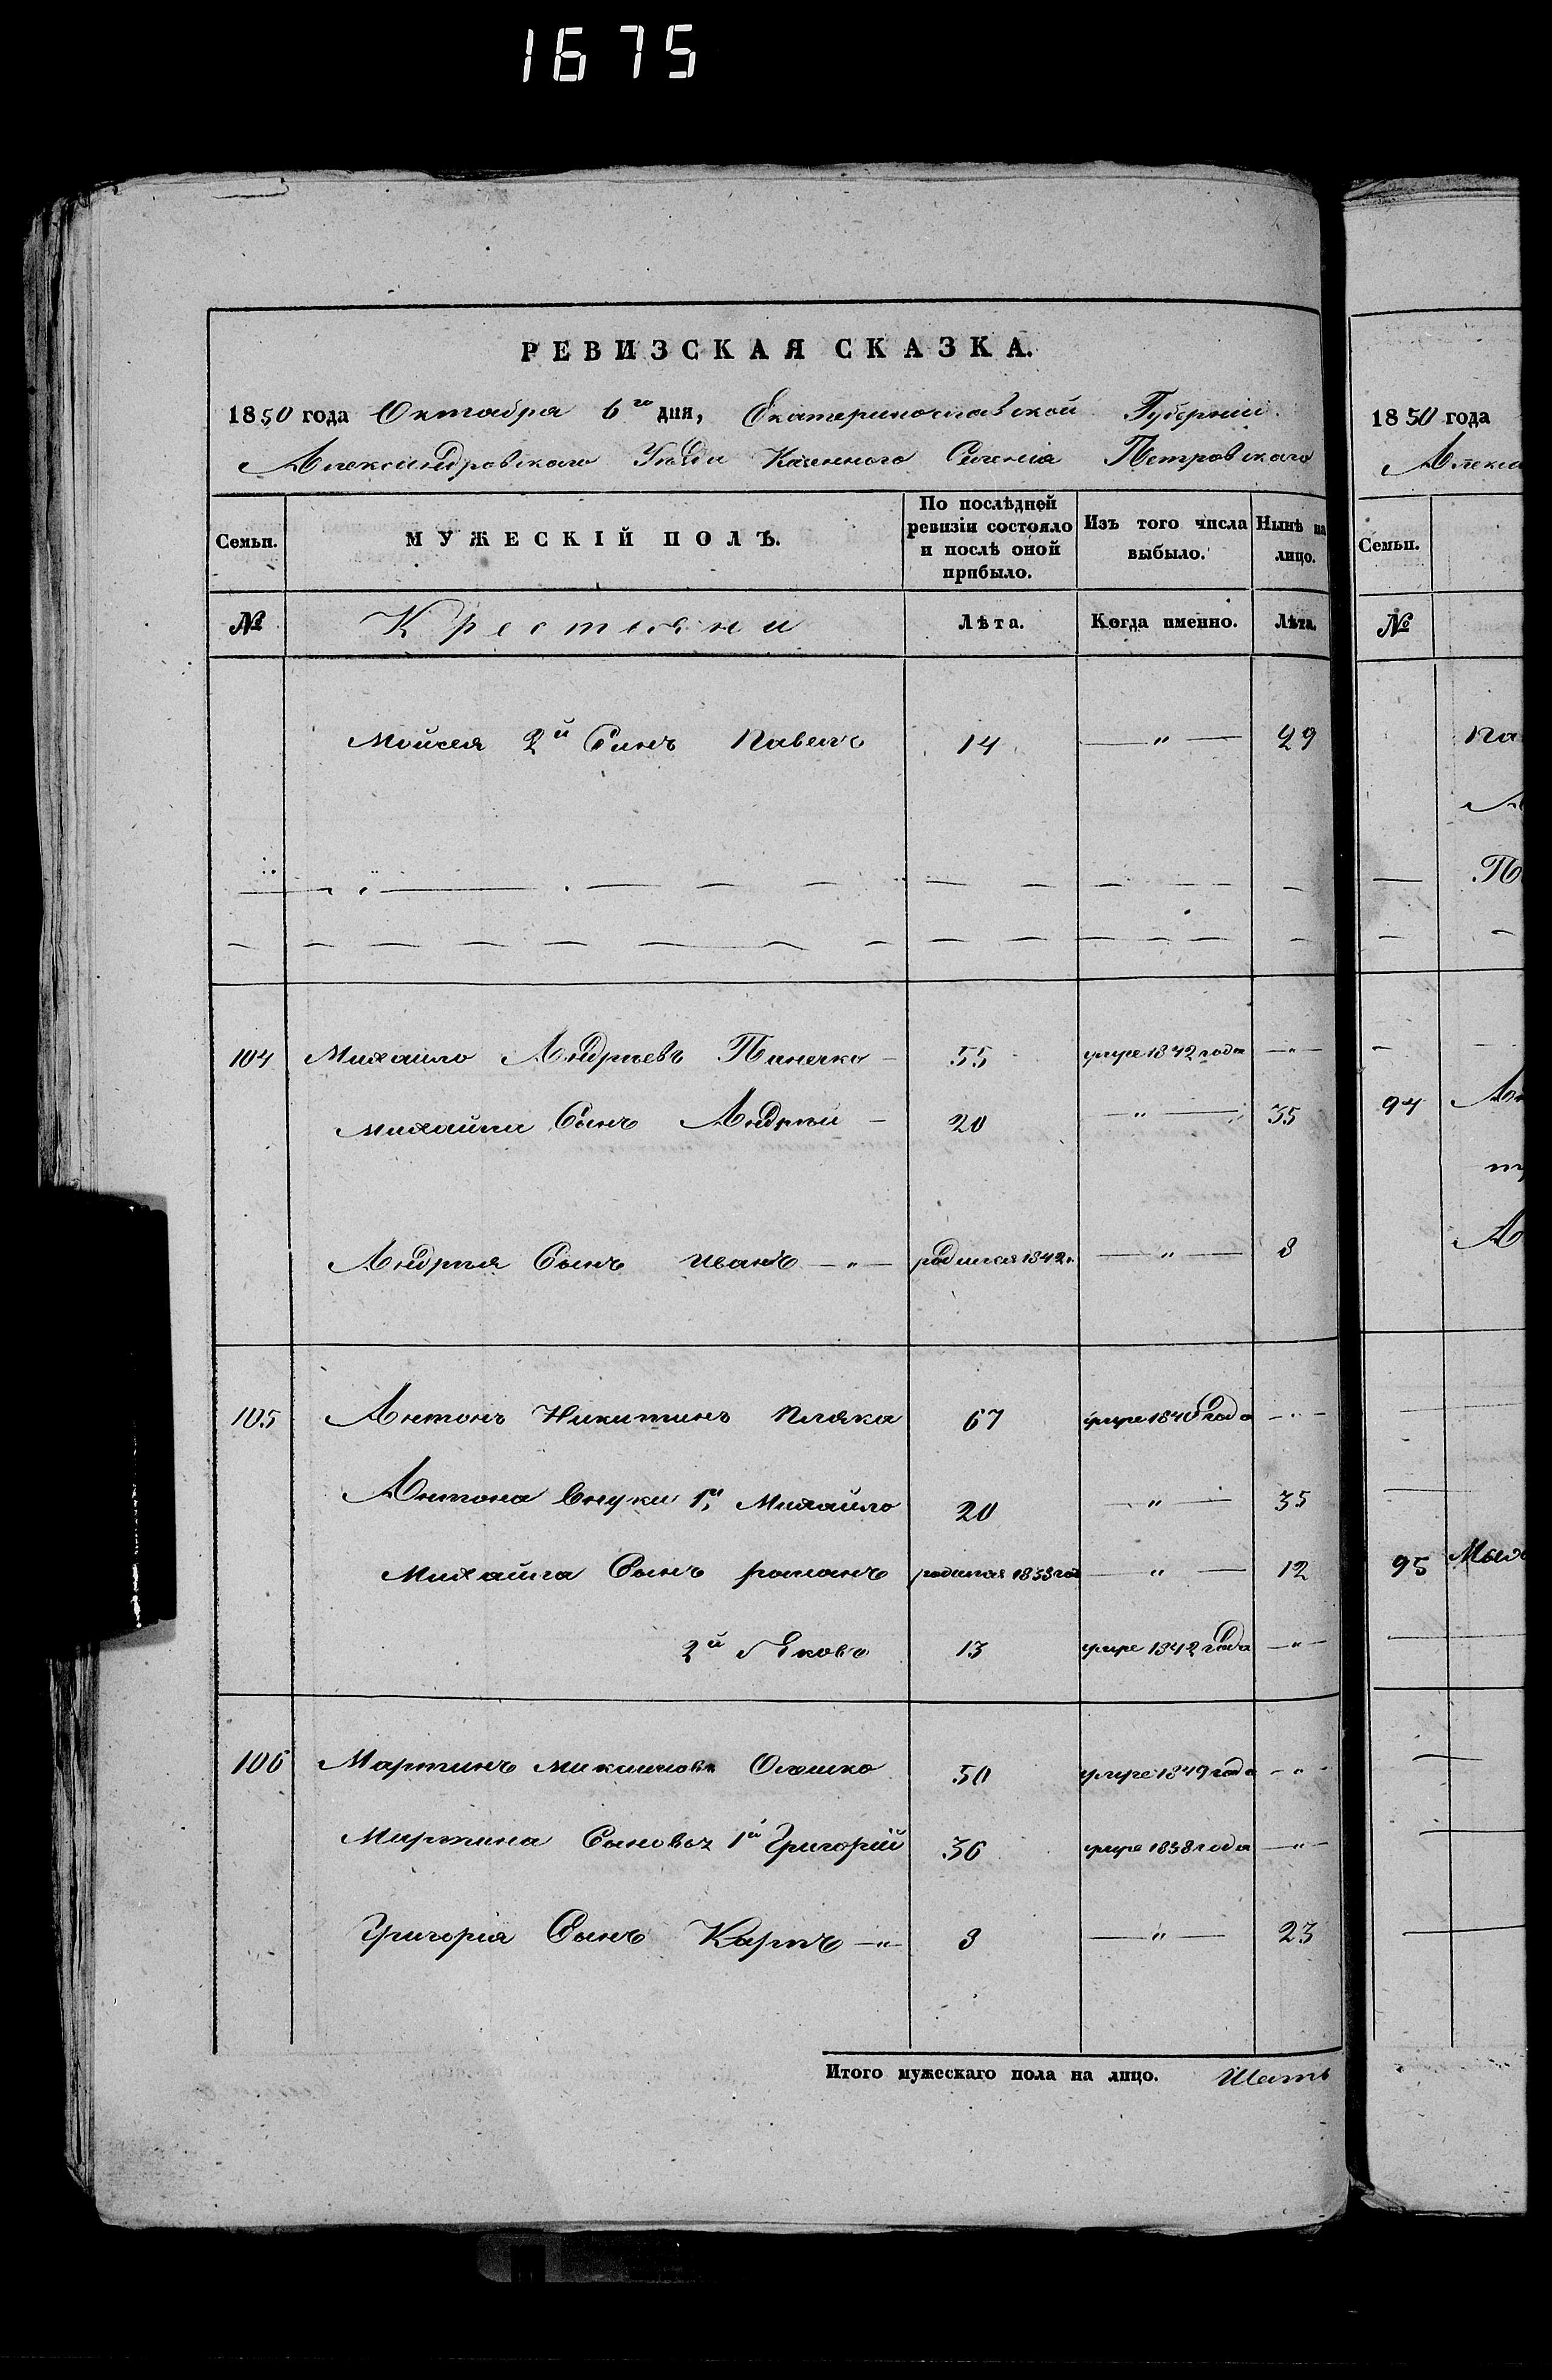 1675
РЕВИЗСКАЯ СКАЗКА.
1850 года Октября 6го дня, Екатеринославской Губерніи
Александровскаго Уѣзда Казенного Селенія Петровскаго
Семьи. МУЖЕСКІЙ ПОЛЪ. По послѣдней ревизіи состояло и послѣ оной прибыло. Изъ того числа выбыло. Нынѣ на лицо.
№ Крестьяни Лѣта. Когда именно. Лѣта.
Мойсея 2й Синъ Павелъ 14 — " — 29
104 Михайло Андрѣевъ Панечко — 55 умре 1842 года — " —
Михайла Сынъ Андрѣй — 20 — " — 35
Андрѣя Сынъ Иванъ — " — родился 1842 г. — " — 8
105 Антонъ Никитинъ Пляка 67 умре 1840 года — " —
Антона Внуки 1й Михайло 20 — " — 35
Михайла Сынъ романъ родился 1838 год — " — 12
2й Яковъ 13 умре 1842 года — " —
106 Мартинъ Максимовъ Оляшко 50 умре 1849 года — " —
Мартина Сыновья 1й Григорій 36 умре 1838 года — " —
Григорія Сынъ Карпъ — " — 8 — " — 23
Итого мужескаго пола на лицо. Шесть
1850 года
Алекса
Семьи.
№
Па
П
94 Ан
А
95 Мых